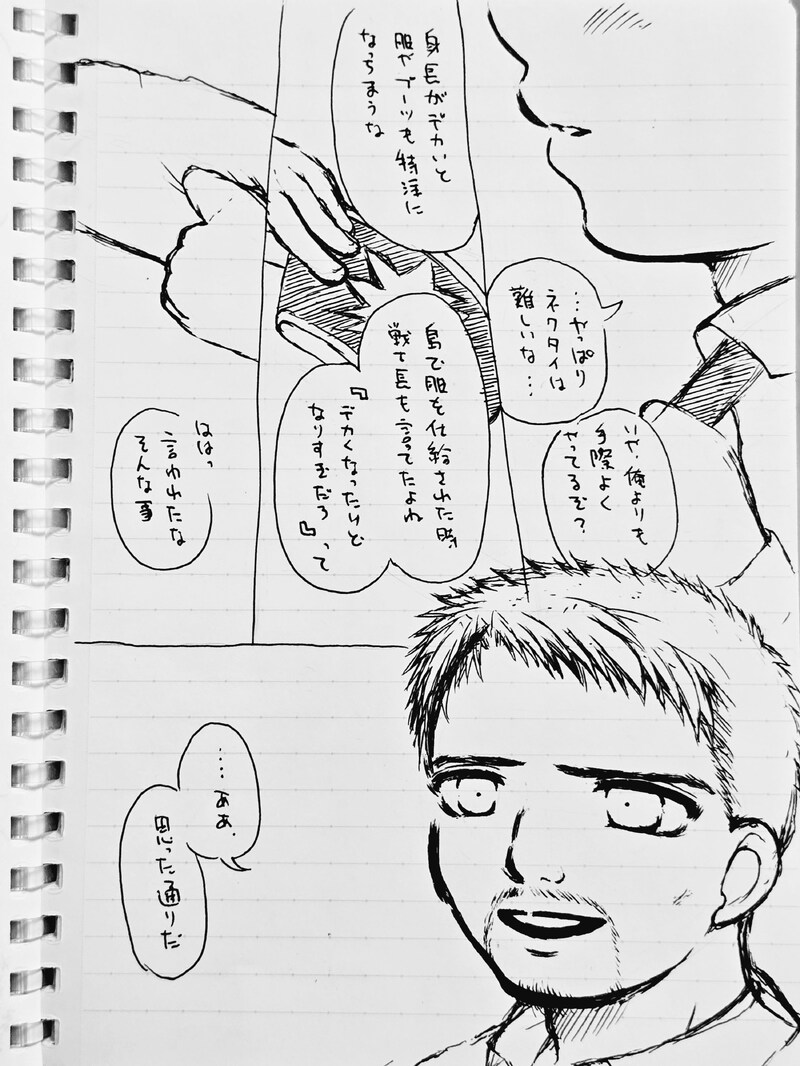 …やっぱり
ネクタイは
難しいな…
いや、俺よりも
手際よく
やってるぞ?
身長がデカいと
服やブーツも特注に
なっちまうな
島で服を仕給された時
戦士長も言ってたよね
『デカくなったけど
なりすぎだろ』って
ははっ
言われたな
そんな事
……ああ、
思った通りだ